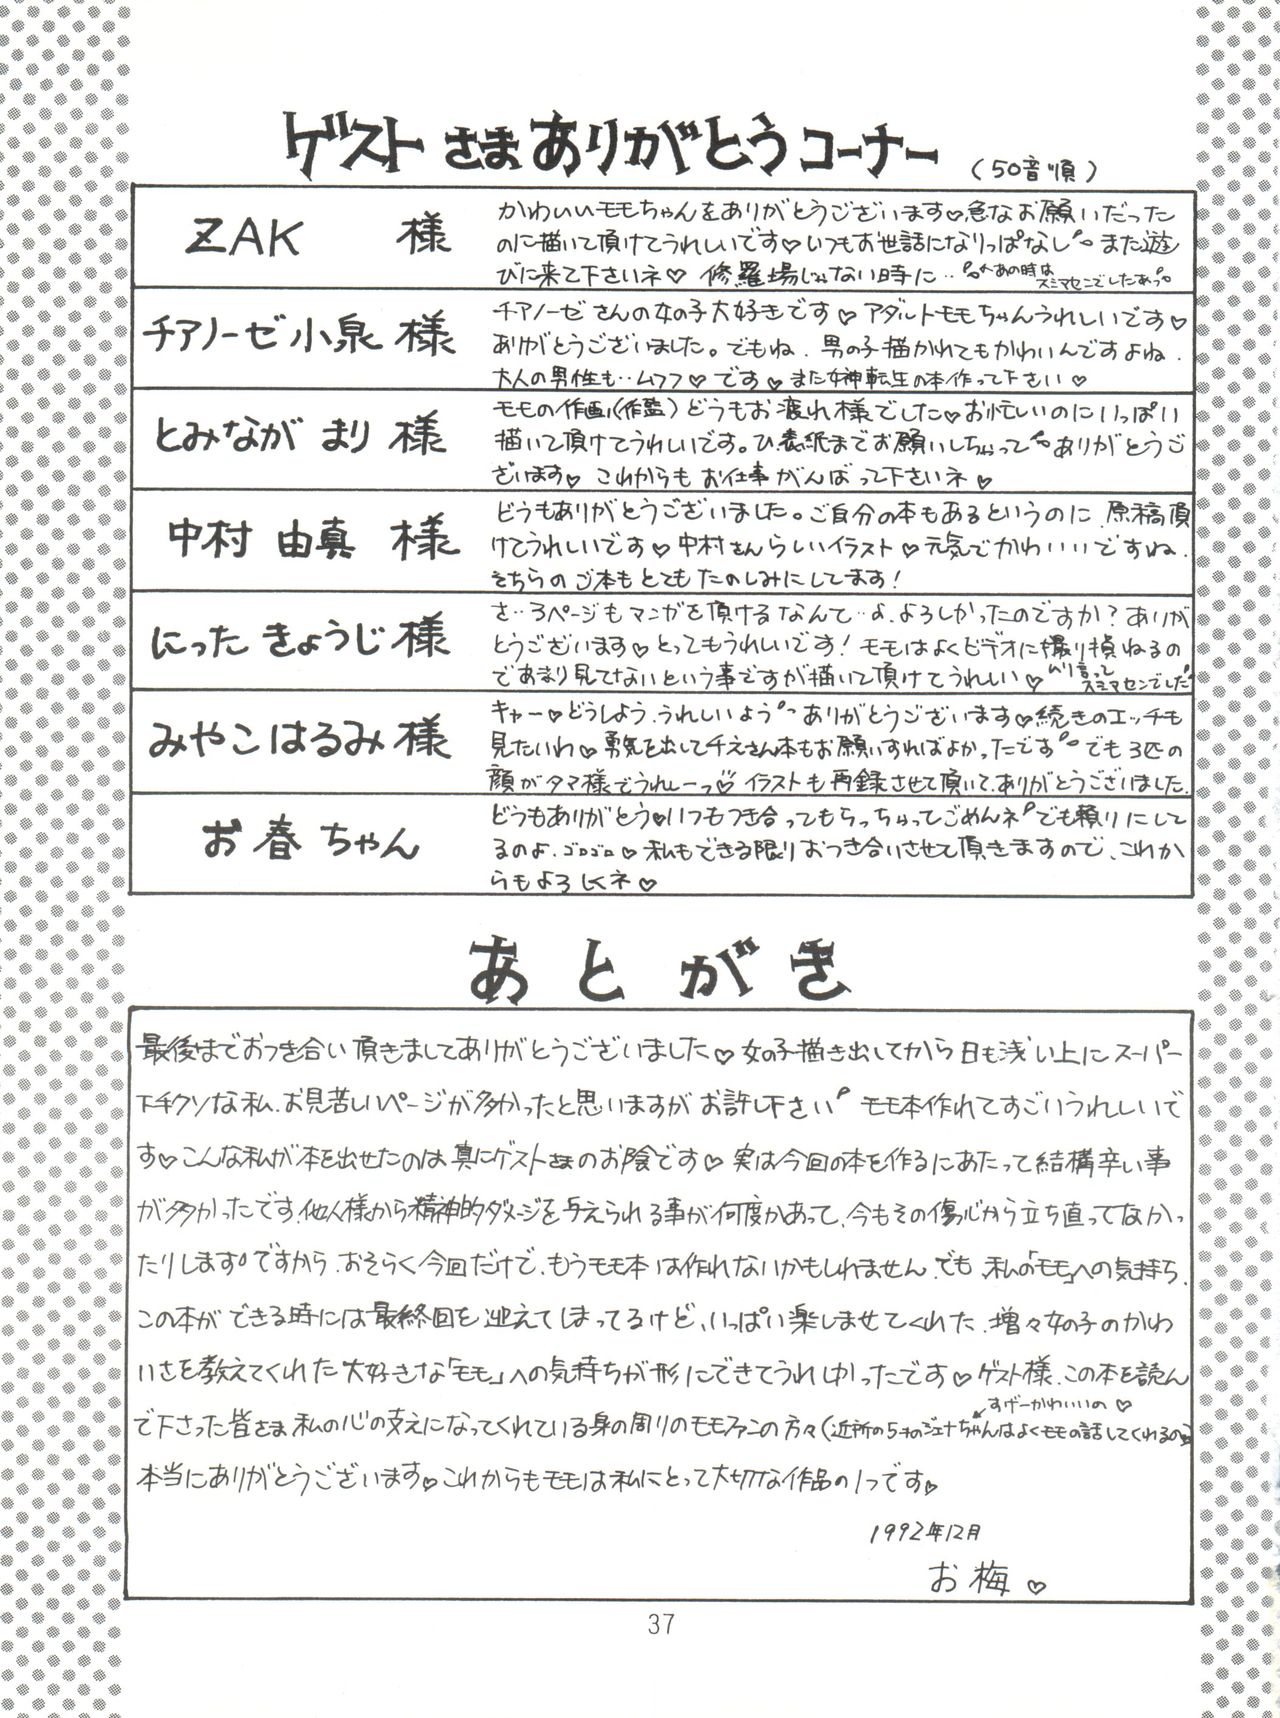 ゲストさまありがとうコーナー (50音順)
ZAK 様
かわいいモモちゃんをありがとうございます♡急なお願いだった
のに描いて頂けてうれしいです♡いつもお世話になりっぱなし また遊
びに来て下さいネ♡ 修羅場じゃない時に‥ あの時は
スミマセンでしたあっ
チアノーゼ小泉 様
チアノーゼさんの女の子大好きです♡アダルトモモちゃんうれしいです♡
ありがとうございました。でもね、男の子描かれてもかわいんですよね、
大人の男性も‥ムフフ♡です♡また女神転生の本作って下さい♡
とみなが まり 様
モモの作画(作監)どうもお疲れ様でした♡お忙しいのにいっぱい
描いて頂けてうれしいです。ひ、表紙までお願いしちゃって ありがとうご
ざいます♡ これからもお仕事がんばって下さいネ♡
中村 由真 様
どうもありがとうございました。ご自分の本もあるというのに、原稿頂
けてうれしいです♡中村さんらしいイラスト♡元気でかわいいですね、
そちらのご本もとてもたのしみにしてます!
にった きょうじ 様
さ‥3ページもマンガを頂けるなんて‥よ、よろしかったのですか?ありが
とうございます♡とってもうれしいです! モモはよくビデオに撮り損ねるの
であまり見てないという事ですが描いて頂けてうれしい♡ ムリ言って
スミマセンでした
みやこ はるみ 様
キャー♡どうしよう、うれしいよう ありがとうございます♡続きのエッチも
見たいわ♡勇気を出して千えさん本もお願いすればよかったです でも3匹の
顔がタマ様でうれしーっ♡イラストも再録させて頂いて、ありがとうございました。
お春ちゃん
どうもありがとう♡いつもつき合ってもらっちゃってごめんネ でも頼りにして
るのよ、ゴロゴロ♡私もできる限りおつき合いさせて頂きますので、これか
らもよろしくネ♡
あとがき
最後までおつき合い頂きましてありがとうございました♡女の子描き出してから日も浅い上にスーパー
下手クソな私、お見苦しいページが多かったと思いますがお許し下さい モモ本作れてすごいうれしいで
す♡こんな私が本を出せたのは真にゲストさまのお陰です♡ 実は今回の本を作るにあたって結構辛い事
が多かったです、他人様から精神的ダメージを与えられる事が何度かあって、今もその傷心から立ち直ってなかっ
たりします ですから、おそらく今回だけで、もうモモ本は作れないかもしれません、でも、私の「モモ」への気持ち、
この本ができる時には最終回を迎えてしまってるけど、いっぱい楽しませてくれた、増々女の子のかわ
いさを教えてくれた大好きな「モモ」への気持ちが形にできてうれしかったです♡ゲスト様、この本を読ん
すげーかわいいの♡
で下さった皆さま、私の心の支えになってくれている身の周りのモモファンの方々(近所の5才のジェナちゃんはよくモモの話してくれるの)
本当にありがとうございます♡これからもモモは私にとって大切な作品の1つです♡
1992年12月
お梅♡
37